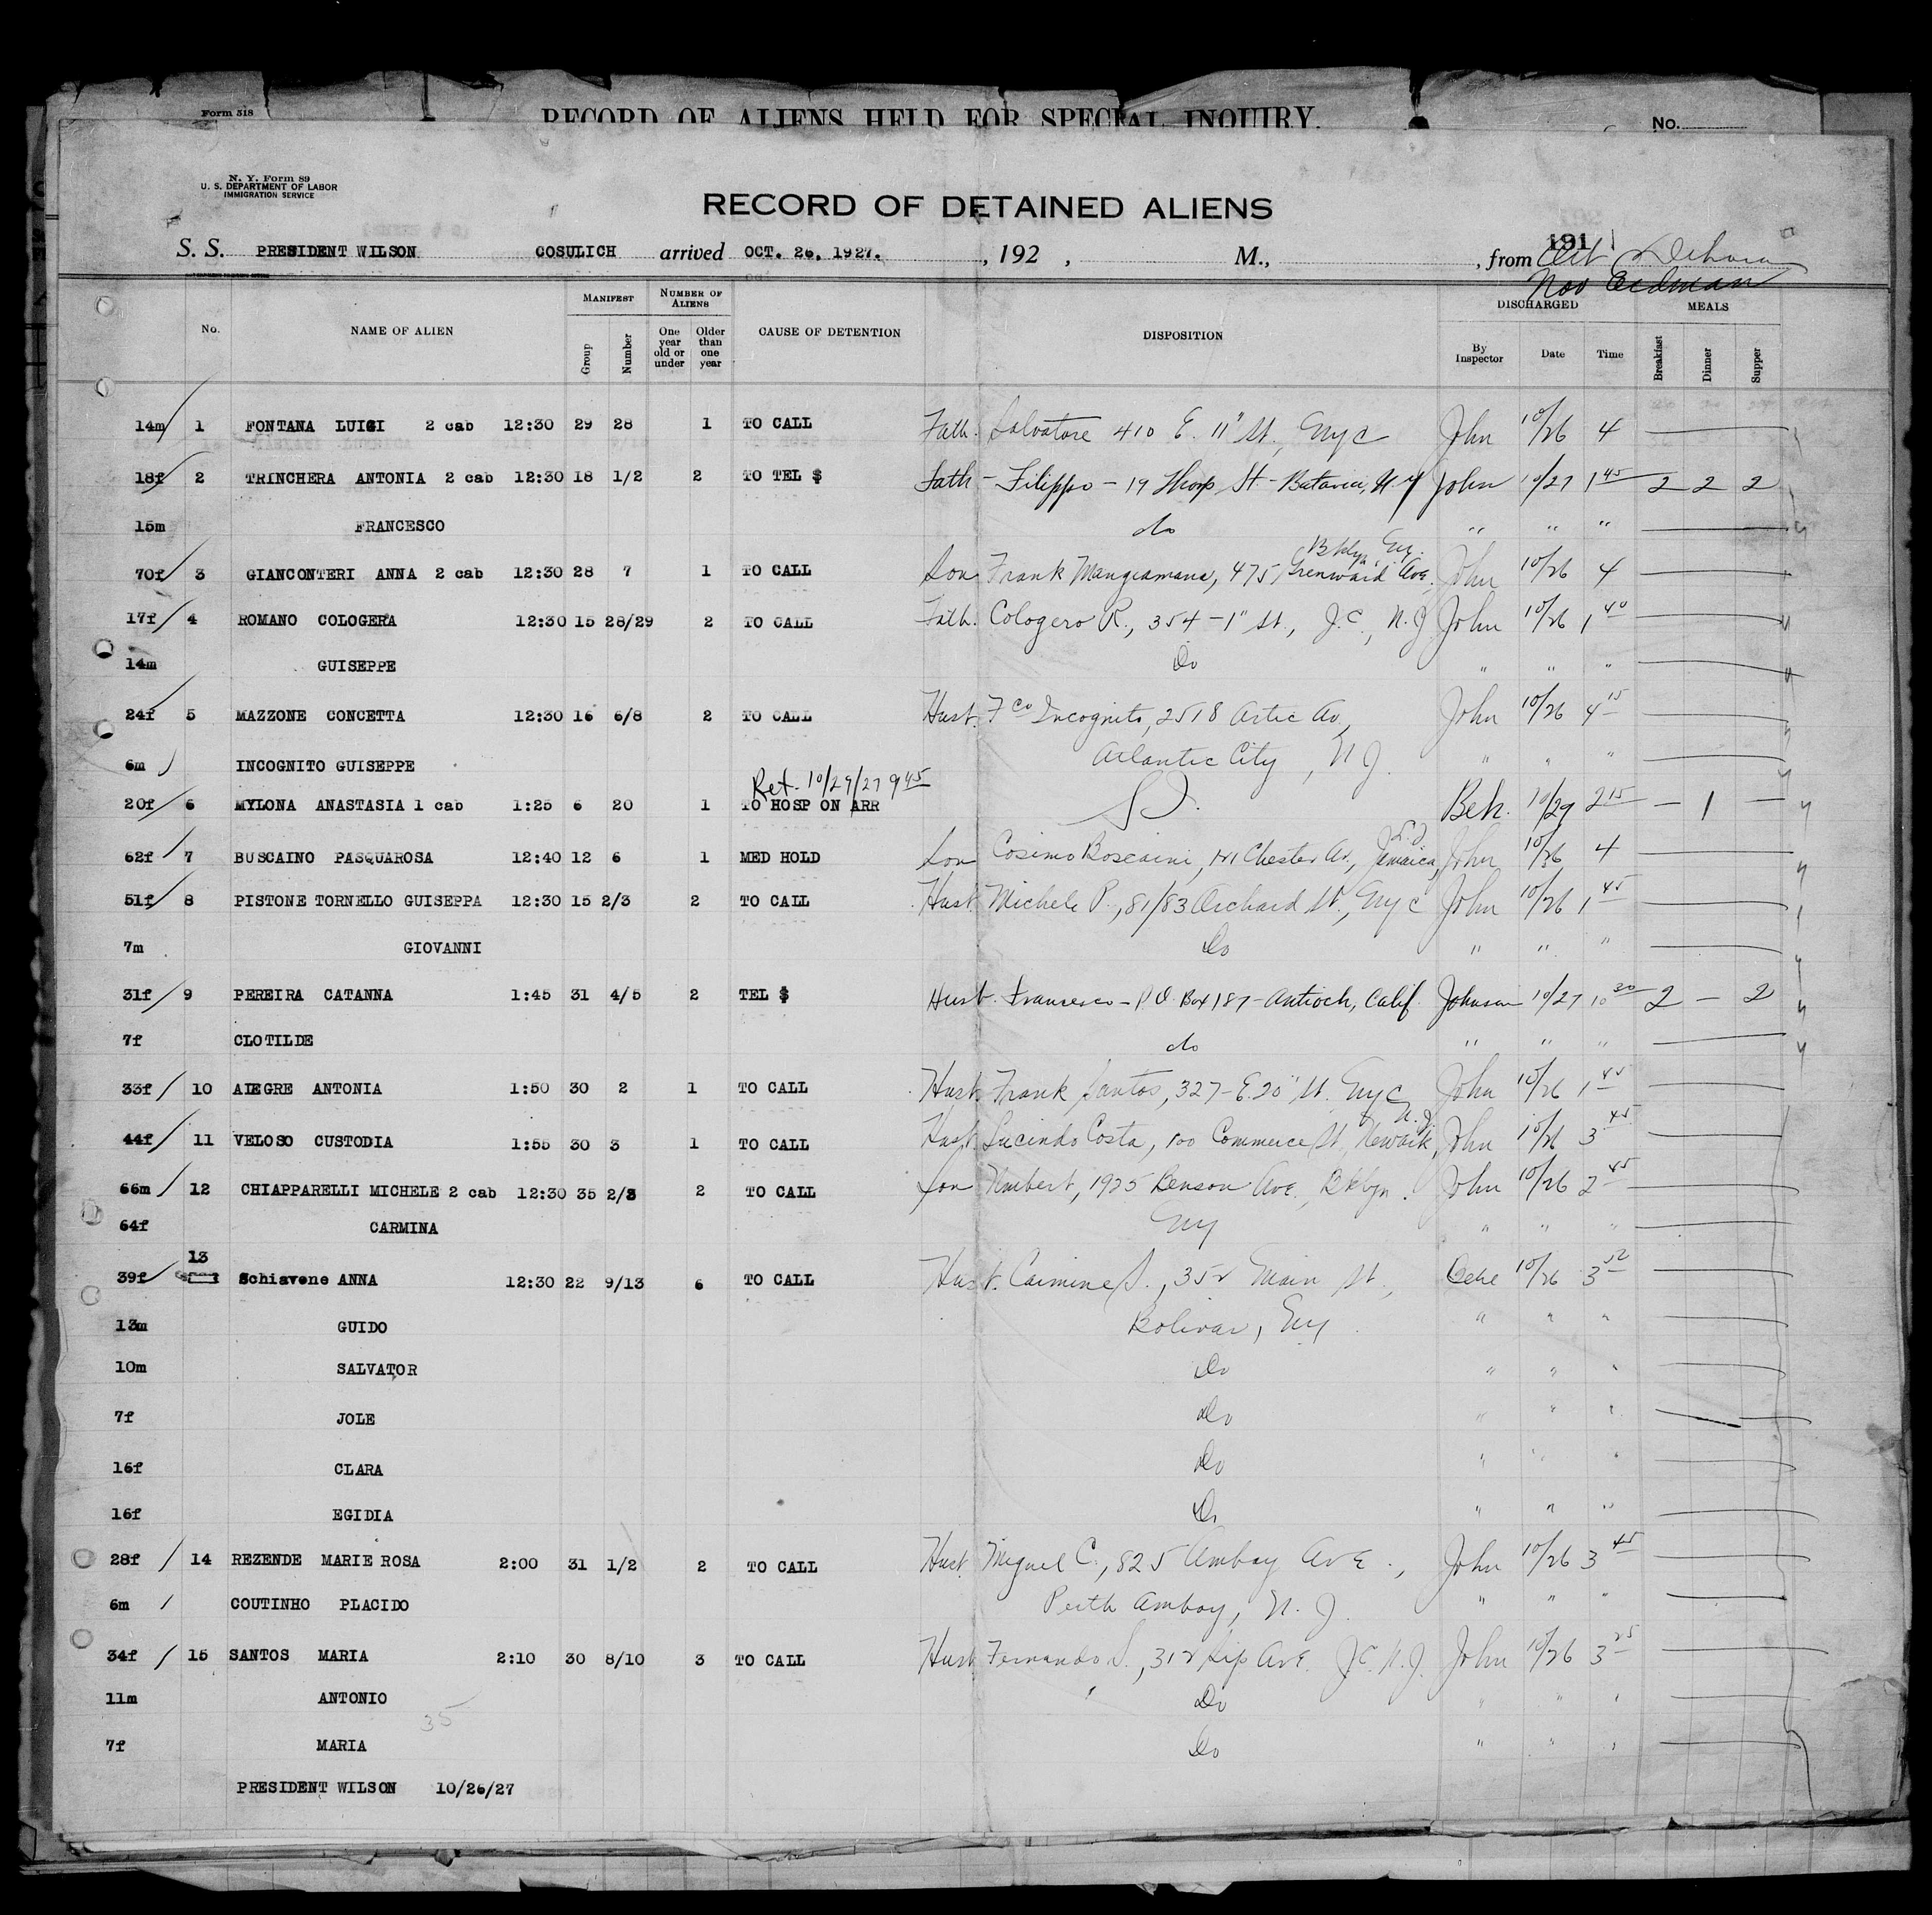 Form 518
RECORD OF ALIENS HELD FOR SPECIAL INQUIRY.
No.
N. Y. Form 89
U. S. DEPARTMENT OF LABOR
IMMIGRATION SERVICE
RECORD OF DETAINED ALIENS
191
S. S. PRESIDENT WILSON COSULICH arrived OCT. 26, 1927. , 192 , M., , from
No. NAME OF ALIEN MANIFEST Group Number NUMBER OF ALIENS One year old or under Older than one year CAUSE OF DETENTION DISPOSITION DISCHARGED By Inspector Date Time MEALS Breakfast Dinner Supper
14m 1 FONTANA LUIGI 2 cab 12:30 29 28 1 TO CALL Fath. Salvatore 410 E. 11" St., NYC John 10/26 4
18f 2 TRINCHERA ANTONIA 2 cab 12:30 18 1/2 2 TO TEL $ Fath - Filippo - 19 Thorp St - Batavia, N.Y John 10/27 1 45 2 2 2
15m FRANCESCO do " " "
Bklyn, NY.
70f 3 GIANCONTERI ANNA 2 cab 12:30 28 7 1 TO CALL Son Frank Mangiamana, 475 Ave. John 10/26 4
17f 4 ROMANO COLOGERA 12:30 15 28/29 2 TO CALL Fath. Cologero R., 354 - 1" St., J.C., N.J John 10/26 1 40
14m GUISEPPE Do " " "
24f 5 MAZZONE CONCETTA 12:30 16 6/8 2 TO CALL Husb. Fco Incognito, 2518 Artic Av, John 10/26 4 15
6m INCOGNITO GUISEPPE Atlantic City, N J. " " "
Ret. 10/29/27 9 45
20f 6 MYLONA ANASTASIA 1 cab 1:25 6 20 1 TO HOSP ON ARR SI. Beh. 10/29 2 15 - 1 -
62f 7 BUSCAINO PASQUAROSA 12:40 12 6 1 MED HOLD Son Cosimo Boscaini, Chester Av., Jamaica, John 10/26 4
51f 8 PISTONE TORNELLO GUISEPPA 12:30 15 2/3 2 TO CALL Husb Michele P., 81/83 Orchard St., NYC John 10/26 1 45
7m GIOVANNI Do " " "
31f 9 PEREIRA CATANNA 1:45 31 4/5 2 TEL $ Husb. Francesco - P.O. Box 187 - Antioch, Calif. Johnson 10/27 10 30 2 - 2
7f CLOTILDE do " " "
33f 10 ALEGRE ANTONIA 1:50 30 2 1 TO CALL Husb Frank Santos, 327 - E. 20" St. NYC John 10/26 1 45
N.J.
44f 11 VELOSO CUSTODIA 1:55 30 3 1 TO CALL Husb. Lucindo Costa, 100 Commerce St, Newark, John 10/26 3 45
66m 12 CHIAPPARELLI MICHELE 2 cab 12:30 35 2/3 2 TO CALL Son Umbert, 1925 Benson Ave., Bklyn. John 10/26 2 45
64f CARMINA NY " " "
13
39f Schiavene ANNA 12:30 22 9/13 6 TO CALL Husb. Carmine S., 352 Main St., 10/26 3 52
13m GUIDO Bolivar, NY " " "
10m SALVATOR Do " " "
7f JOLE Do " " "
16f CLARA Do " " "
16f EGIDIA Do " " "
28f 14 REZENDE MARIE ROSA 2:00 31 1/2 2 TO CALL Husb. Miguel C., 825 Amboy AVE., John 10/26 3 45
6m COUTINHO PLACIDO Perth Amboy, N. J. " " "
34f 15 SANTOS MARIA 2:10 30 8/10 3 TO CALL Husb Fernando S., 312 Sip AVE. J.C. N.J. John 10/26 3 25
11m ANTONIO Do " " "
35
7f MARIA Do " " "
PRESIDENT WILSON 10/26/27